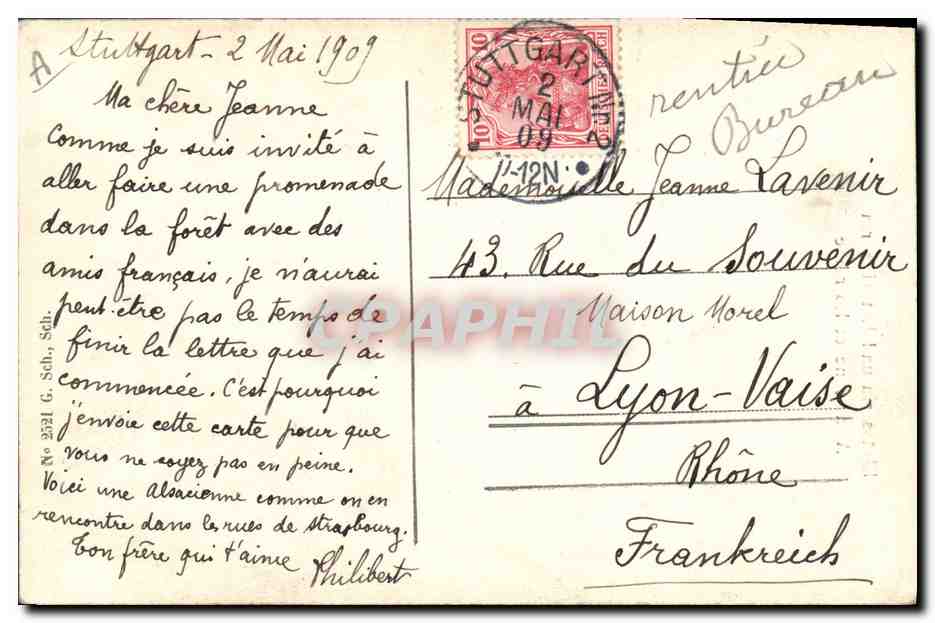 A
Stuttgart - 2 Mai 1909
Ma chère Jeanne
Comme je suis invité à
aller faire une promenade
dans la forêt avec des
amis français, je n'aurai
peut-être pas le temps de
finir la lettre que j'ai
commencée. C'est pourquoi
j'envoie cette carte pour que
vous ne soyez pas en peine.
Voici une Alsacienne comme on en
rencontre dans les rues de Strasbourg.
Ton frère qui t'aime
Philibert
No 2521 G. Sch., Sch.
10 10
DEUTSCHES REICH
STUTTGART
2
MAI
09
11-12N
rentrée
Bureau
Mademoiselle Jeanne Lavenir
43. Rue du Souvenir
Maison Morel
à Lyon-Vaise
Rhône
Frankreich
CPAPHIL